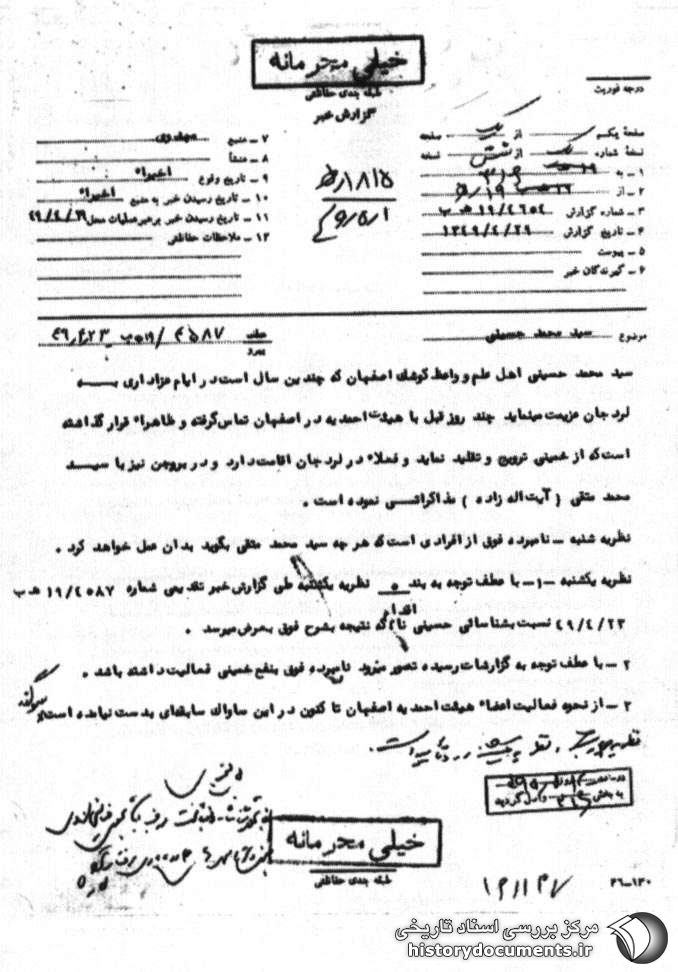 خیلی محرمانه
طبقه بندی حفاظتی
گزارش خبر
درجه فوریت
صفحه یکم از یک صفحه
نسخه شماره یک از شش نسخه
۱ - به ۳۱۶
۲ - از ۱۹ ه‍
۳ - شماره گزارش ۱۹/۴۶۵۴ ه‍ ب
۴ - تاریخ گزارش ۱۳۴۹/۴/۲۹
۵ - پیوست
۶ - گیرندگان خبر
۷ - منبع مهدوی
۸ - منشأ
۹ - تاریخ وقوع اخیراً
۱۰ - تاریخ رسیدن خبر به منبع اخیراً
۱۱ - تاریخ رسیدن خبر برهبر عملیات محل ۴۹/۴/۲۹
۱۲ - ملاحظات حفاظتی
موضوع سید محمد حسینی
عطف
پیرو
۴۵۸۷ / ۱۹ ه‍ ب ۴۹٫۴٫۲۳
سید محمد حسینی اهل علم و واعظ کوشک اصفهان که چندین سال است در ایام عزاداری بـــه
لردجان عزیمت مینماید چند روز قبل با هیئت احمدیه در اصفهان تماس گرفته و ظاهراً قرار گذاشته
است که از خمینی ترویج و تقلید نماید و فعلاً در لردجان اقامت دارد و در بروجن نیز با سیـــد
محمد متقی ( آیت اله زاده ) مذاکراتــی نموده است .
نظریه شنبه - نامبرده فوق از افرادی است که هر چه سید محمد متقی بگوید بدان عمل خواهد کرد .
نظریه یکشنبه - ۱ - با عطف توجه به بند ۵ نظریه یکشنبه طی گزارش خبر تقدیمی شماره ۱۹/۴۵۸۷ ه‍ ب
۴۹/۴/۲۳ نسبت بشناسائی حسینی نام اقدام که نتیجه بشرح فوق بعرض میرسد .
۲ - با عطف توجه به گزارشات رسیده تصور میرود نامبرده فوق بنفع خمینی فعالیت داشته باشد .
۳ - از نحوه فعالیت اعضاء هیئت احمدیه اصفهان تا کنون در این ساواک سابقه‌ای بدست نیامده است .
به بخش ۳۱۶ واصل گردید
خیلی محرمانه
طبقه بندی حفاظتی
۲۶-۱۳۰
مرکز بررسی اسناد تاریخی
historydocuments.ir